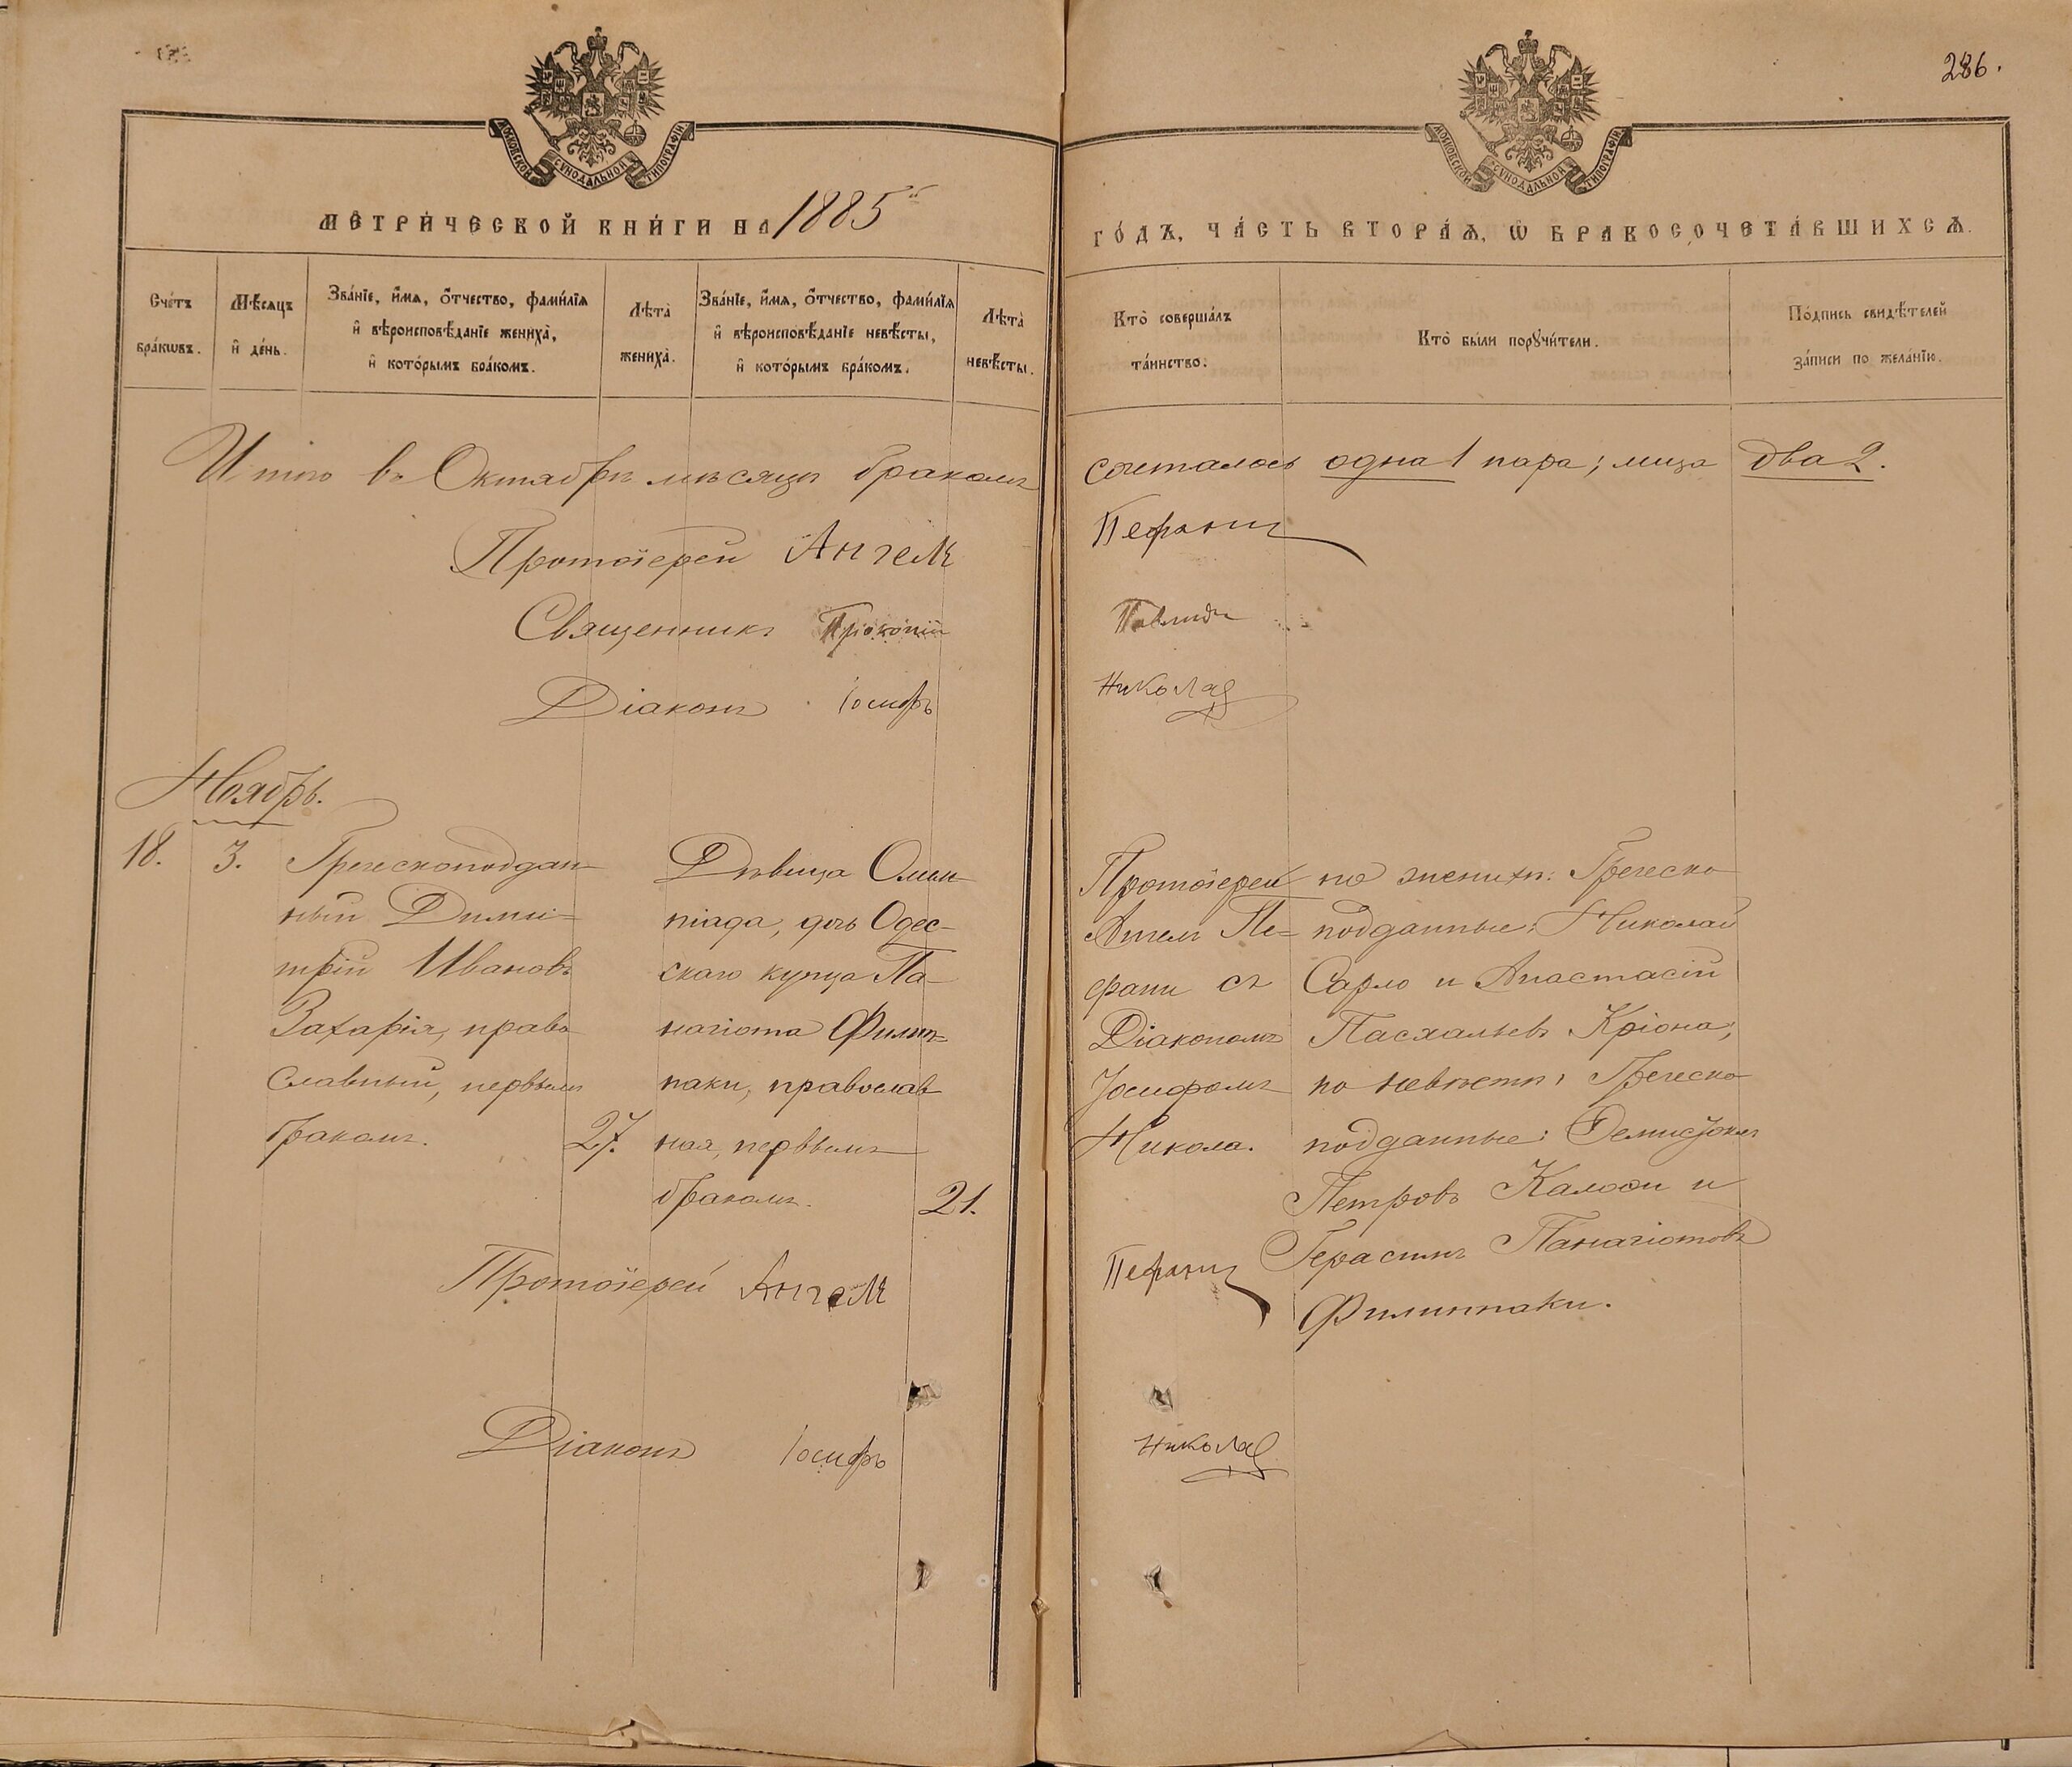 286.
МОСКОВСКОЙ СУНОДАЛЬНОЙ ТИПОГРАФІИ
МОСКОВСКОЙ СУНОДАЛЬНОЙ ТИПОГРАФІИ
МЕТРИ́ЧЕСКОЙ КНИ́ГИ НА 1885й
ГО́ДЪ, ЧА́СТЬ ВТОРА́Ѧ, Ѡ БРАКОСОЧЕТА́ВШИХСѦ.
Сче́тъ
бра́кѡвъ.
Мѣ́сяцъ
и҆ де́нь.
Зва́нїе, и҆́мя, ѻ҆́тчество, фами́лїя
и҆ вѣроисповѣ́данїе жениха̀,
и҆ кото́рымъ бра́комъ.
Лѣта̀
жениха̀.
Зва́нїе, и҆́мя, ѻ҆́тчество, фами́лїя
и҆ вѣроисповѣ́данїе невѣ́сты,
и҆ кото́рымъ бра́комъ.
Лѣта̀
невѣ́сты.
Кто̀ соверша́лъ
та́инство.
Кто̀ бы́ли порꙋчи́тели.
По́дпись свидѣ́телей
за́писи по жела́нїю.
Итого въ Октябрѣ мѣсяцѣ бракомъ сочеталось одна 1 пара; лица два 2.
Протоіерей Ангелъ Пефани
Священникъ Прокопій Павлиди
Діаконъ Іосифъ Никола
Ноябрь.
18.
3.
Греческоподдан-
ный Дими-
трій Ивановъ
Захарія, право-
славный, первымъ
бракомъ.
27.
Дѣвица Олим-
піада, дочь Одес-
скаго купца Па-
нагіота Филип-
паки, православ-
ная, первымъ
бракомъ.
21.
Протоіерей
Ангелъ Пе-
фани съ
Діакономъ
Іосифомъ
Никола.
по женихѣ: Греческо-
подданные: Николай
Сарло и Анастасій
Пасхальевъ Кріона;
по невѣстѣ: Греческо-
подданные: Ѳемистоклъ
Петровъ Калоѳи и
Герасимъ Панагіотовъ
Филиппаки.
Протоіерей Ангелъ Пефани
Діаконъ Іосифъ Никола